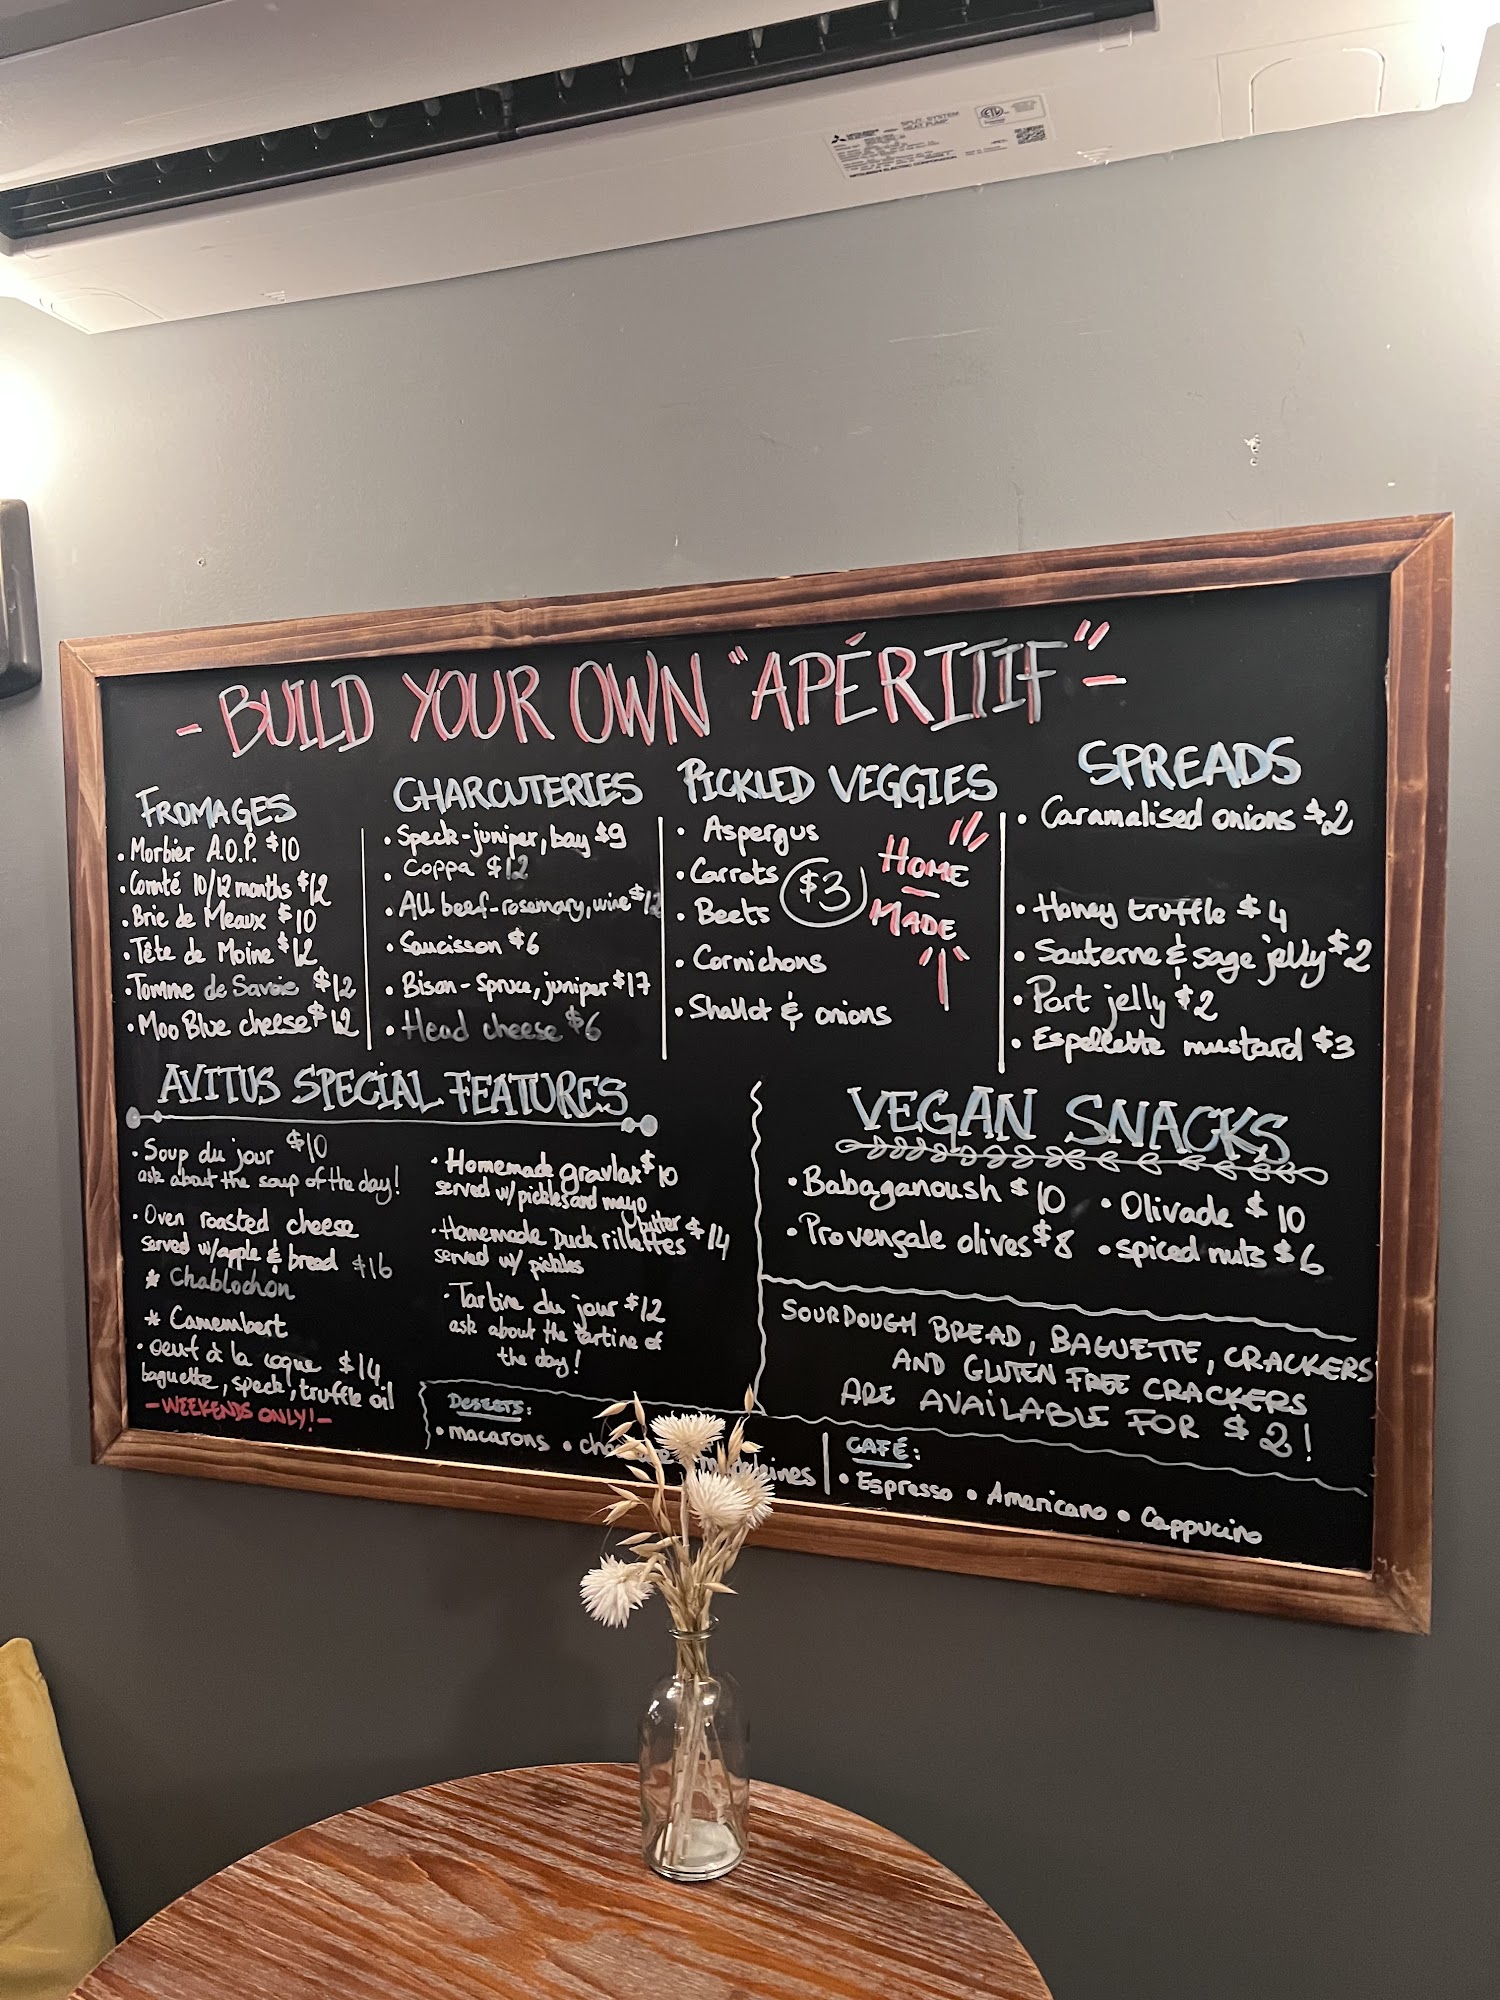 MITSUBISHI ELECTRIC
SPLIT-SYSTEM
HEAT PUMP
MITSUBISHI ELECTRIC CORPORATION
- BUILD YOUR OWN "APÉRITIF" -
FROMAGES
• Morbier A.O.P. $10
• Comté 10/12 months $12
• Brie de Meaux $10
• Tête de Moine $12
• Tomme de Savoie $12
• Moo Blue cheese $12
CHARCUTERIES
• Speck-juniper, bay $9
• Coppa $12
• All beef-rosemary, wine
• Saucisson $6
• Bison - Spruce, juniper $17
• Head cheese $6
PICKLED VEGGIES
• Aspergus
• Carrots
• Beets
• Cornichons
• Shallot & onions
$3
HOME
MADE
SPREADS
• Caramalised onions $2
• Honey truffle $4
• Sauterne & sage jelly $2
• Port jelly $2
• Espellette mustard $3
AVITUS SPECIAL FEATURES
• Soup du jour $10
ask about the soup of the day!
• Oven roasted cheese
served w/apple & bread $16
* Chablochon
* Camembert
• oeuf à la coque $14
baguette, speck, truffle oil
- WEEKENDS ONLY! -
• Homemade gravlax $10
served w/ pickles and mayo
• Homemade Duck rillettes $14
served w/ pickles
butter
• Tartine du jour $12
ask about the tartine of
the day!
VEGAN SNACKS
• Babaganoush $10 • Olivade $10
• Provençale olives $8 • spiced nuts $6
SOURDOUGH BREAD, BAGUETTE, CRACKERS
AND GLUTEN FREE CRACKERS
ARE AVAILABLE FOR $2!
DESSERTS:
• macarons •
CAFÉ:
• Espresso • Americano • Cappucino